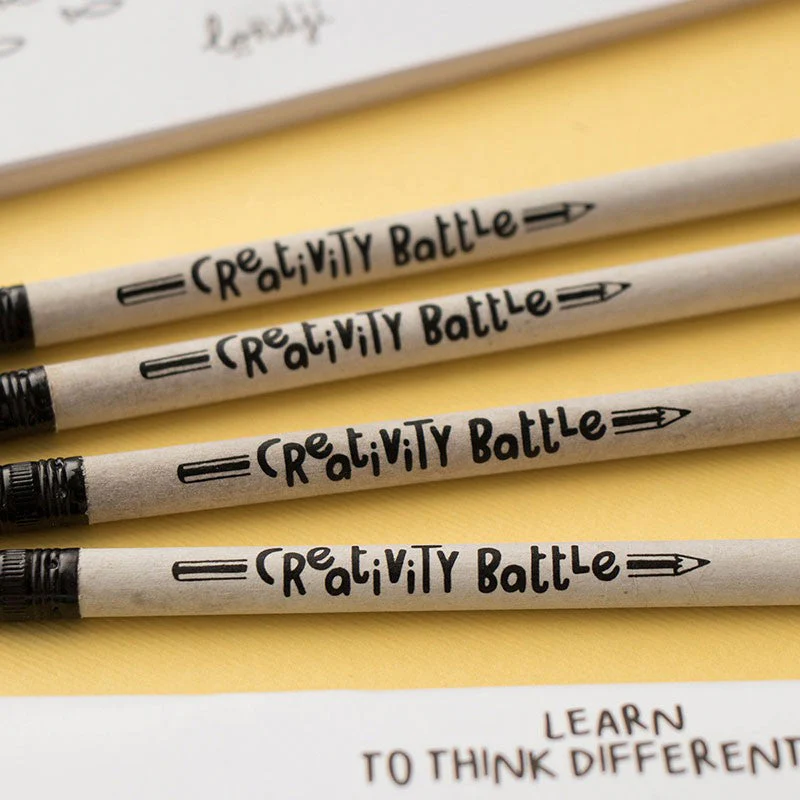 londji
CReatiViTY BattLe
CReatiViTY BattLe
CReatiViTY BattLe
CReatiViTY BattLe
LEARN
TO THINK DIFFERENT